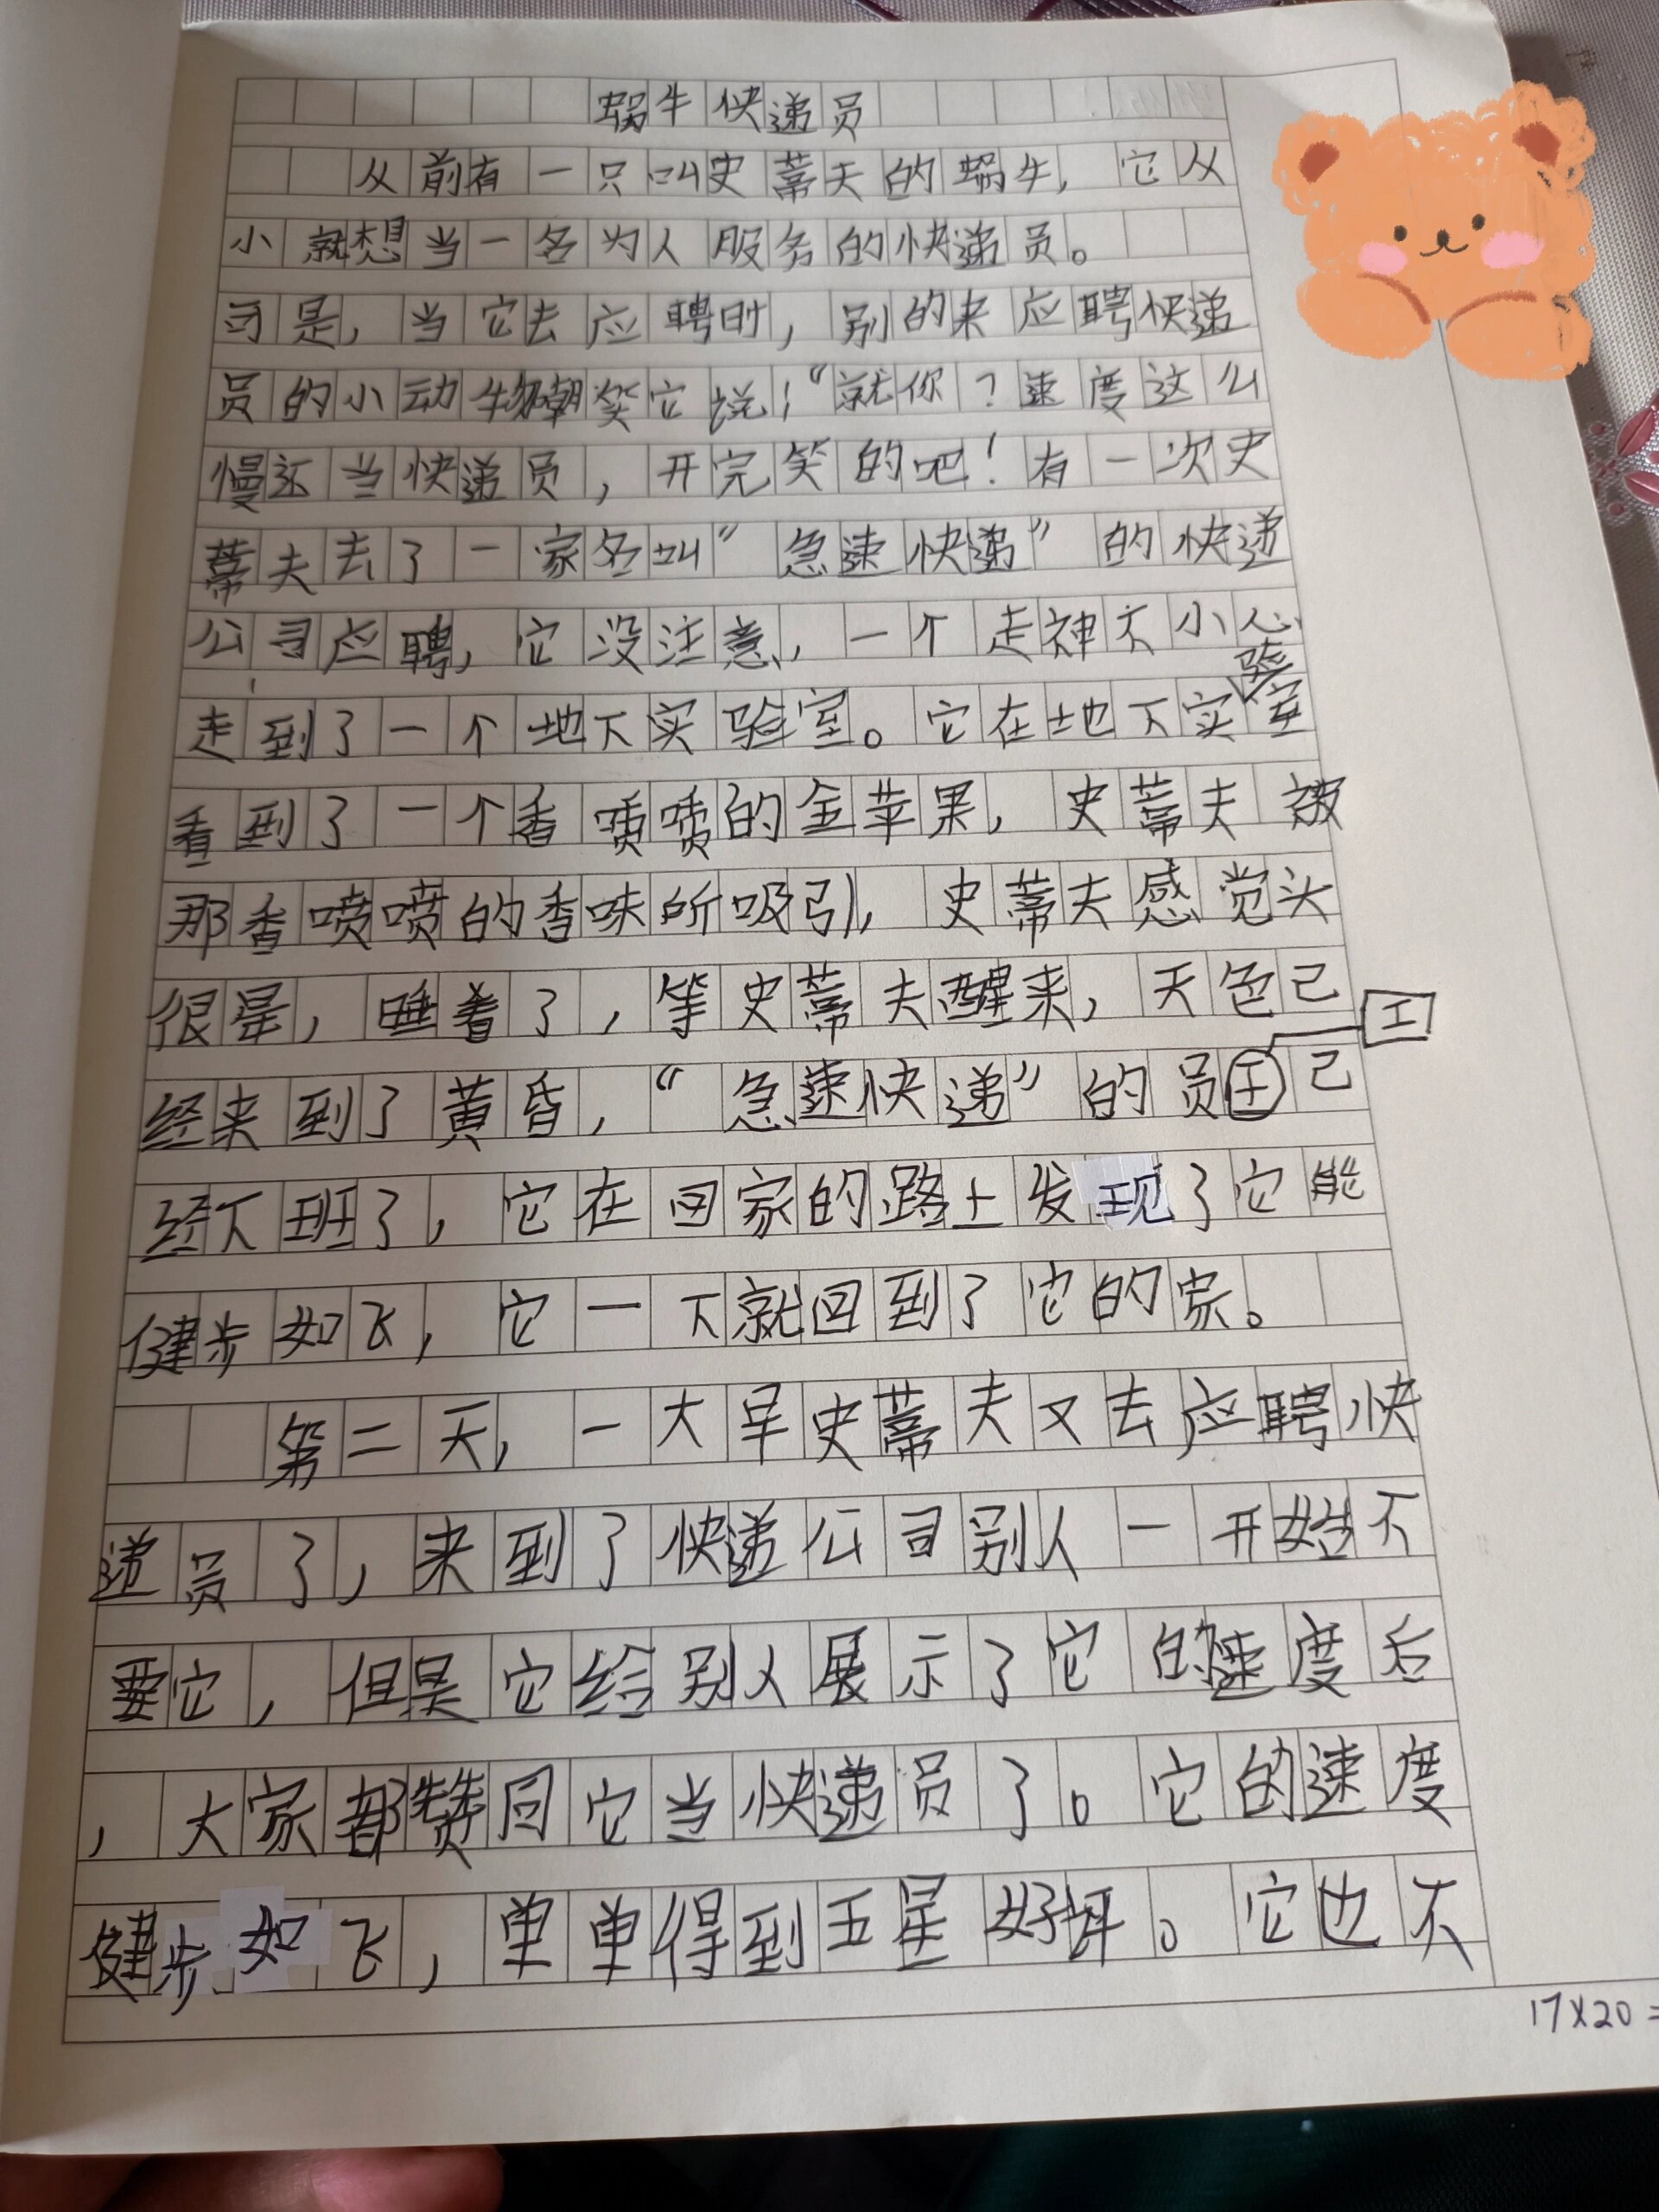 蜗牛快递员
从前有一只叫史蒂夫的蜗牛，它从
小就想当一名为人服务的快递员。
可是，当它去应聘时，别的来应聘快递
员的小动物嘲笑它说：“就你？速度这么
慢还当快递员，开完笑的吧！有一次史
蒂夫去了一家名叫”急速快递”的快递
公司应聘，它没注意，一个走神不小心
走到了一个地下实验室。它在地下实验室
看到了一个香喷喷的金苹果，史蒂夫被
那香喷喷的香味所吸引，史蒂夫感觉头
很晕，睡着了，等史蒂夫醒来，天色己
工
经来到了黄昏，“急速快递”的员工己
经下班了，它在回家的路上发现了它能
健步如飞，它一下就回到了它的家。
第二天，一大早史蒂夫又去应聘快
递员了，来到了快递公司别人一开始不
要它，但是它给别人展示了它的速度后
，大家都赞同它当快递员了。它的速度
健步如飞，单单得到五星好评。它也不
17×20=